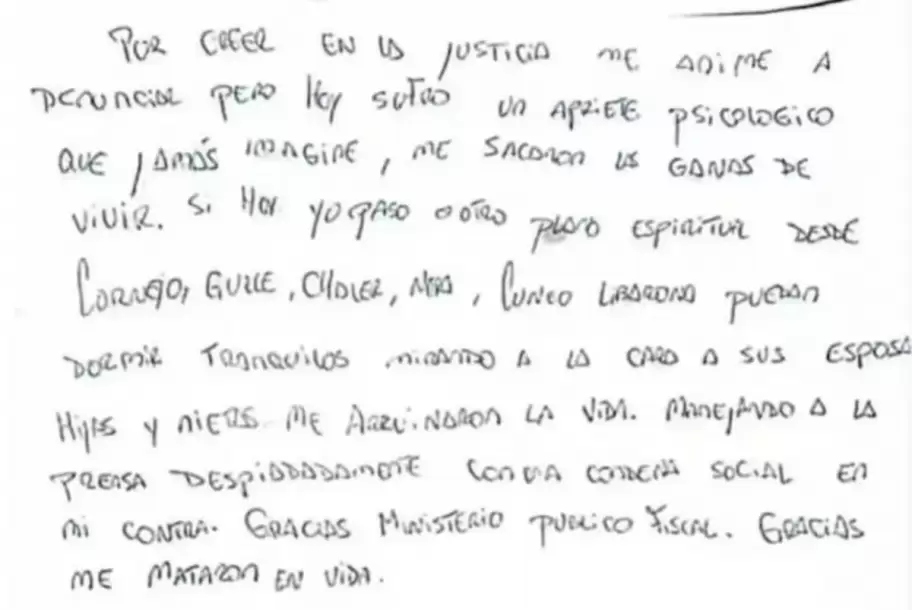 POR CREER EN LA JUSTICIA ME ANIME A
DENUNCIAR PERO HOY SUFRO UN APRIETE PSICOLOGICO
QUE JAMÁS IMAGINE, ME SACARON LAS GANAS DE
VIVIR. SI HOY YO PASO A OTRO PLANO ESPIRITUAL DESDE
CORNEJO, GUILLE, CHALER, CUNEO LIBARONA PUEDAN
DORMIR TRANQUILOS MIRANDO A LA CARA A SUS ESPOSA
HIJAS Y NIETOS. ME ARRUINARON LA VIDA. MANEJANDO A LA
PRENSA DESPIADADAMENTE CON UNA CONDENA SOCIAL EN
MI CONTRA. GRACIAS MINISTERIO PUBLICO FISCAL. GRACIAS
ME MATARON EN VIDA.